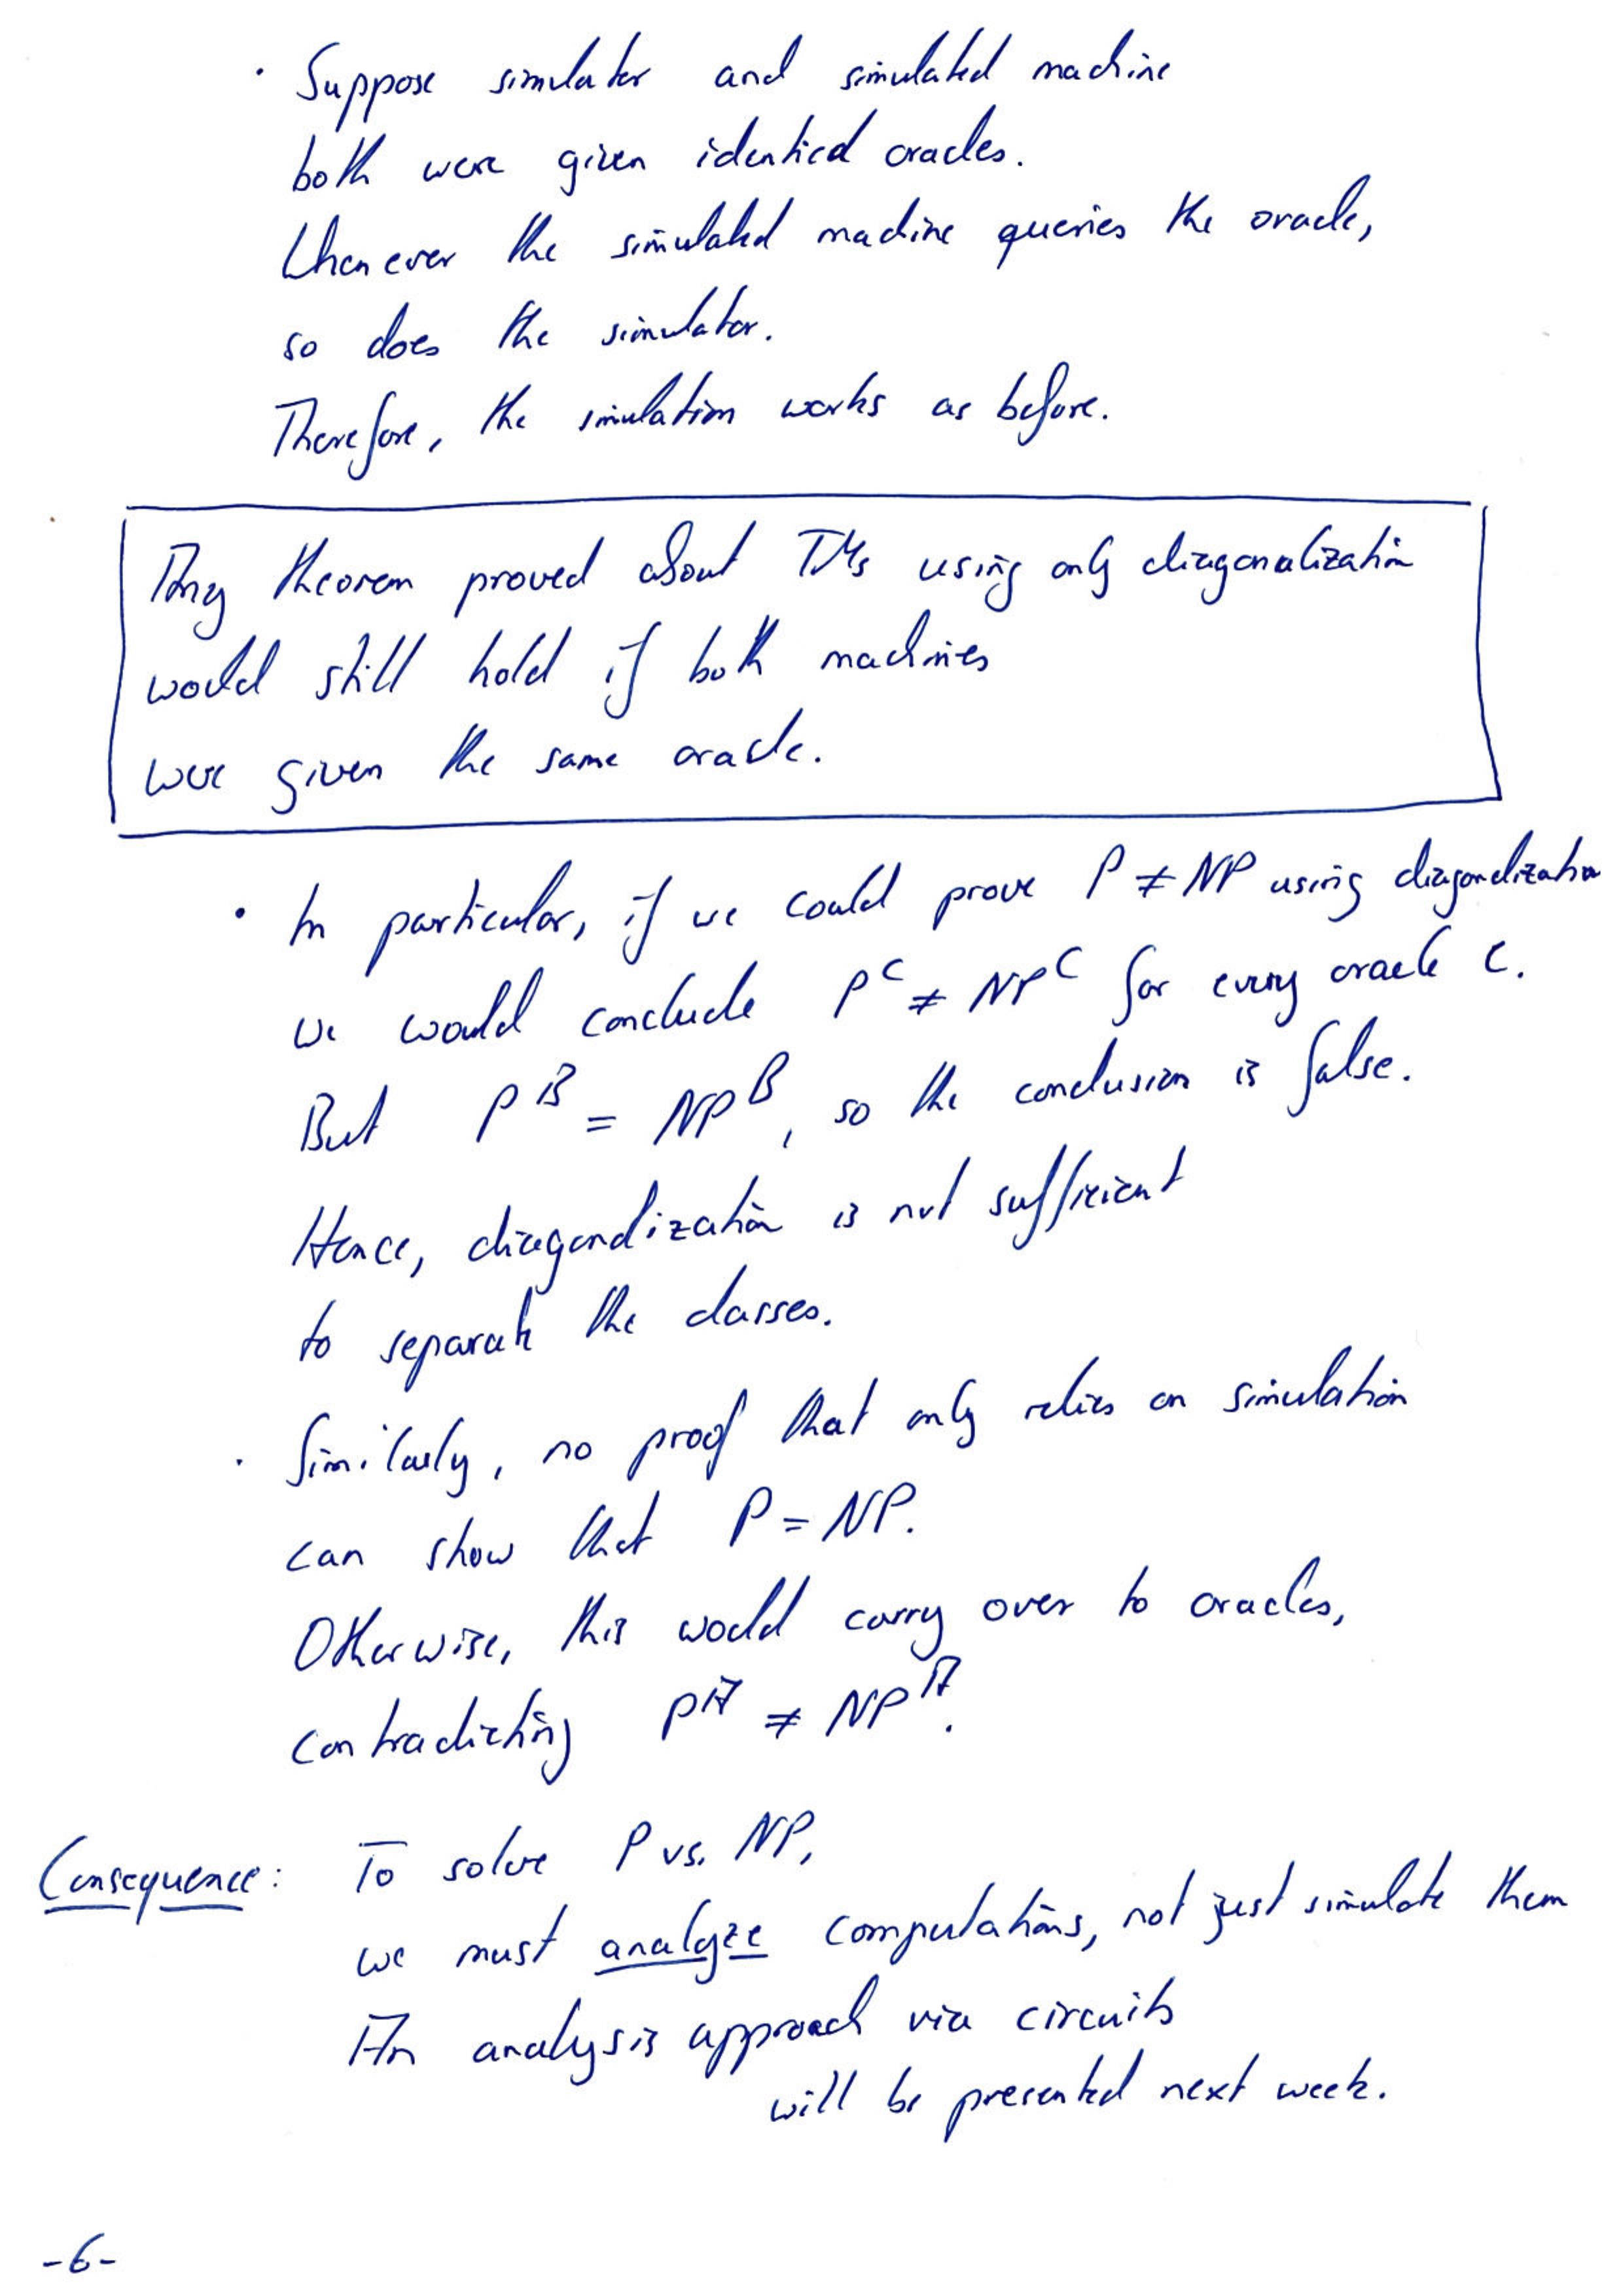 · Suppose simulator and simulated machine
both were given identical oracles.
Whenever the simulated machine queries the oracle,
so does the simulator.
Therefore, the simulation works as before.
Any theorem proved about TMs using only diagonalization
would still hold if both machines
were given the same oracle.
· In particular, if we could prove P ≠ NP using diagonalization
we would conclude P^C ≠ NP^C for every oracle C.
But P^B = NP^B, so the conclusion is false.
Hence, diagonalization is not sufficient
to separate the classes.
· Similarly, no proof that only relies on simulation
can show that P = NP.
Otherwise, this would carry over to oracles,
contradicting P^A ≠ NP^A.
Consequence: To solve P vs. NP,
we must analyze computations, not just simulate them
An analysis approach via circuits
will be presented next week.
-6-